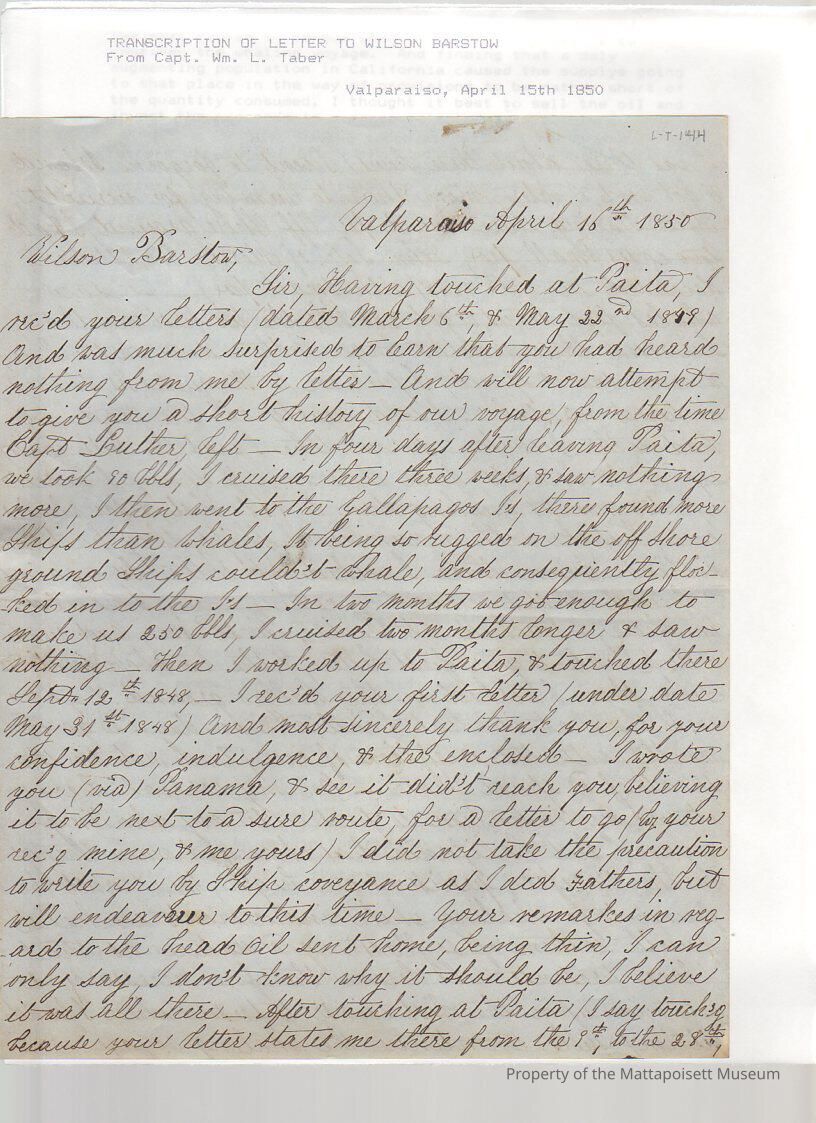 TRANSCRIPTION OF LETTER TO WILSON BARSTOW
From Capt. Wm. L. Taber
augmenting population in California caused the supplys going
to that place in the way
the quantity consumed, I thought it best to sell the oil and
Valparaiso, April 15th 1850
L-T-144
Valparaiso April 16th 1850
Wilson Barstow,
Sir, Having touched at Paita, I
rec'd your letters (dated March 6th, & May 22nd 1849)
And was much surprised to learn that you had heard
nothing from me by letter — And will now attempt
to give you a short history of our voyage, from the time
Capt Luther left — In four days after leaving Paita,
we took 90 bbls, I cruised there three weeks, & saw nothing
more, I then went to the Gallapagos Is, there found more
Ships than whales, It being so rugged on the off shore
ground Ships could't whale, and consequently floc-
ked in to the Is — In two months we got enough to
make us 250 bbls, I cruised two months longer & saw
nothing — Then I worked up to Paita, & touched there
Sept. 12th 1848, — I rec'd your first letter (under date
May 31st 1848) And most sincerely thank you, for your
confidence, indulgence, & the enclosed — I wrote
you (via) Panama, & see it did't reach you, believing
it to be next to a sure route, for a letter to go, (by your
rec'g mine, & me yours) I did not take the precaution
to write you by Ship coveyance as I did Fathers, but
will endeavour to this time — Your remarkes in reg-
ard to the head Oil sent home, being thin, I can
only say, I don't know why it should be, I believe
it was all there — After touching at Paita (I say touch'g
because your letter states me there from the 9th, to the 28th,
Property of the Mattapoisett Museum